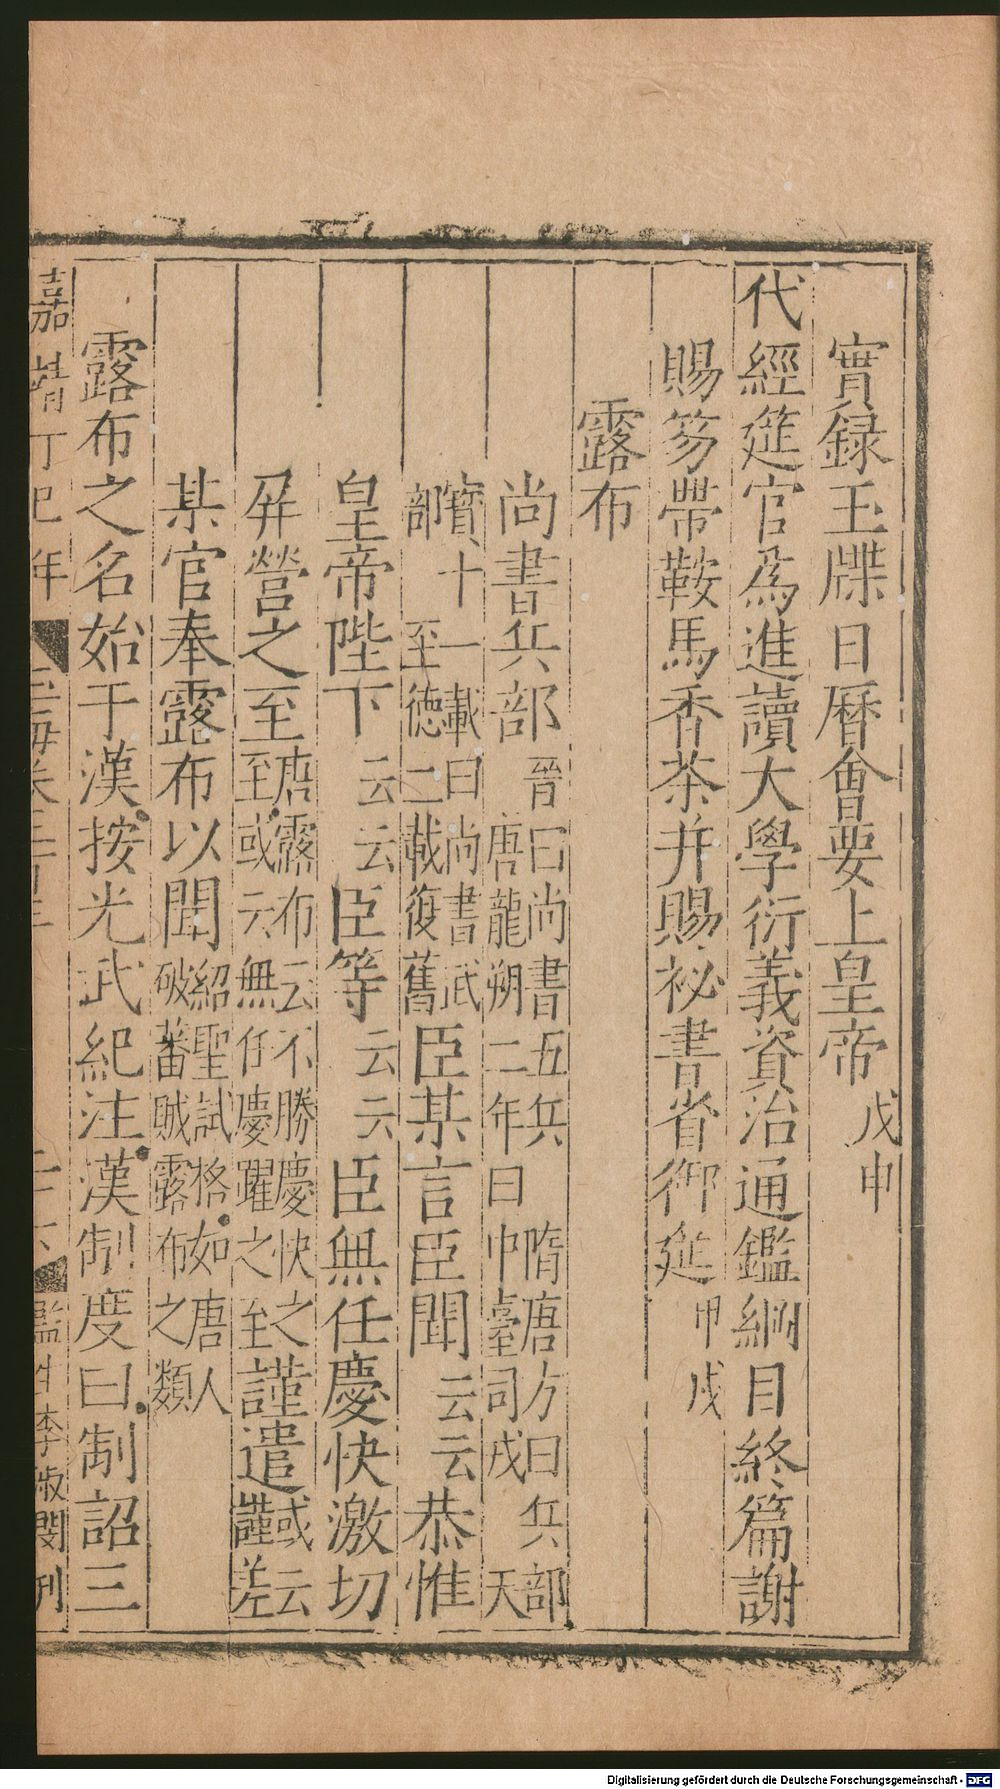 實録玉牒日曆會要上皇帝戊申
代經筵官爲進讀大學衍義資治通鑑綱目終篇謝
賜笏帶鞍馬香茶并賜祕書省御筵甲戌
露布
尚書兵部晉曰尚書五兵隋唐方曰兵部
唐龍朔二年曰中臺司戎天
寳十一載曰尚書武
部至德二載復舊臣某言臣聞云云恭惟
皇帝陛下云云臣等云云臣無任慶快激切
屏營之至唐露布云不勝慶快之
至或云無任慶躍之至謹遣或云
謹差
某官奉露布以聞紹聖試格如唐人
破蕃賊露布之類
露布之名始于漢按光武紀注漢制度曰制詔三
嘉靖丁巳年
監生李淑閔刊
Digitalisierung gefördert durch die Deutsche Forschungsgemeinschaft - DFG